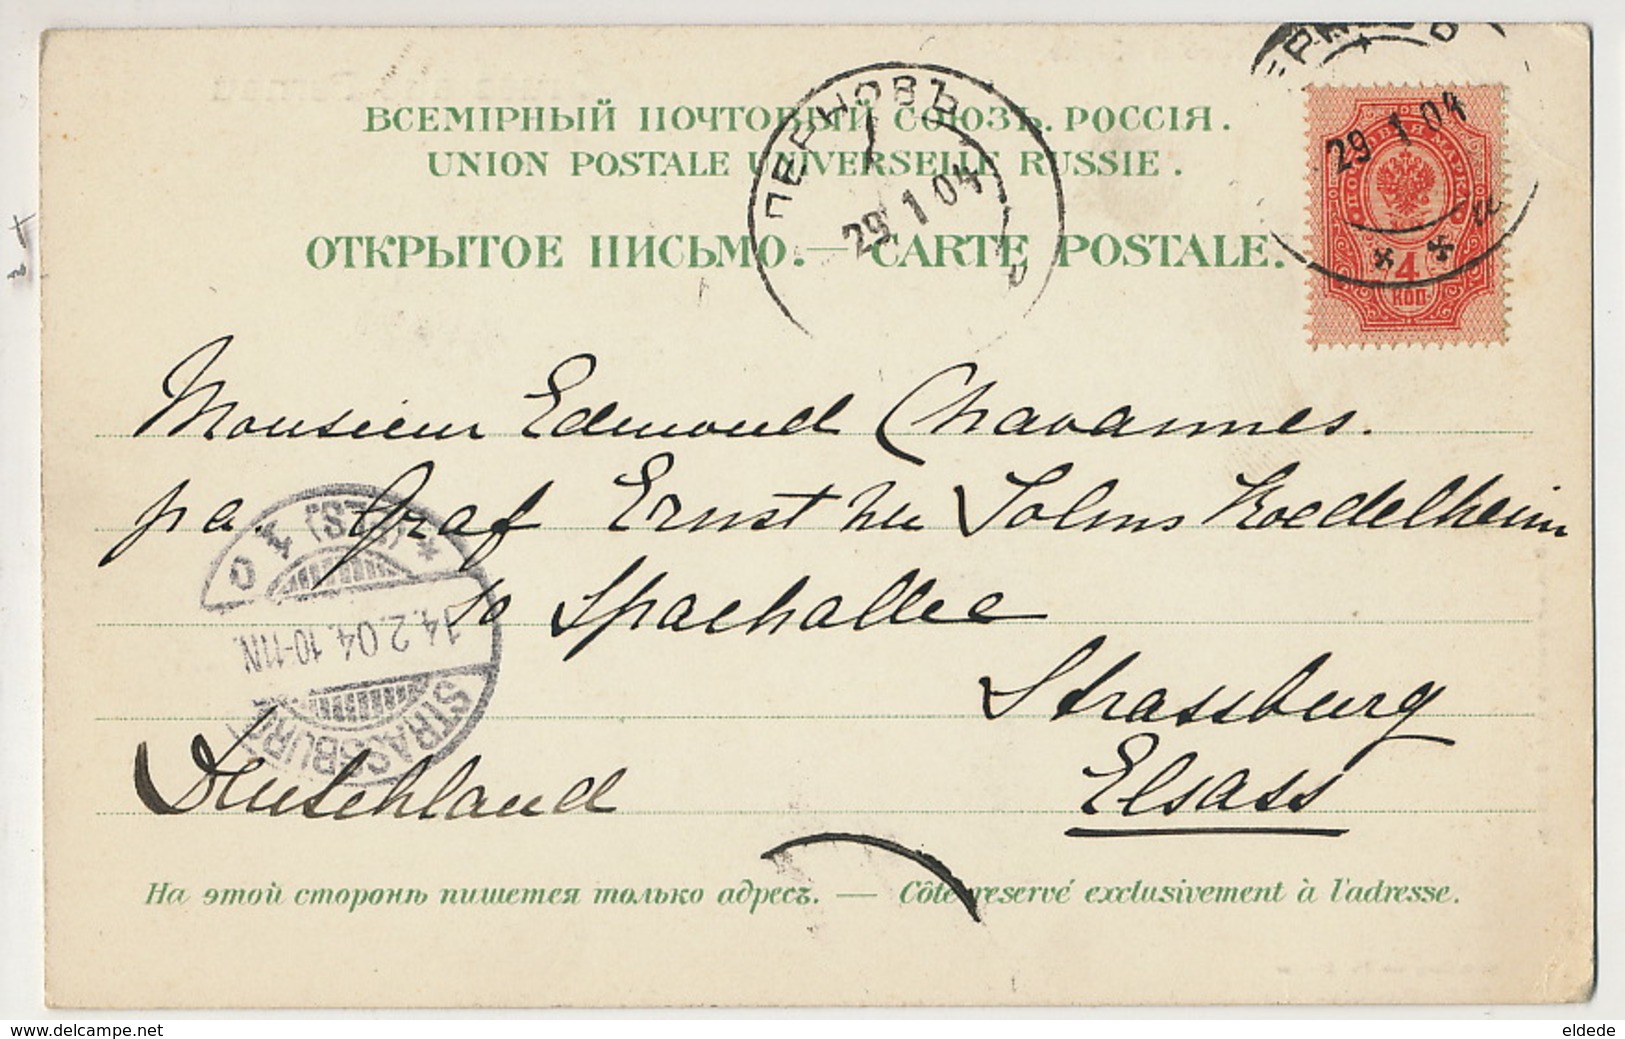 ВСЕМІРНЫЙ ПОЧТОВЫЙ СОЮЗЪ. РОССІЯ.
UNION POSTALE UNIVERSELLE RUSSIE.
ОТКРЫТОЕ ПИСЬМО. — CARTE POSTALE.
ПЕРНОВЪ
29 1 04
29 1 04
ПОЧТОВАЯ МАРКА
4
КОП.
Monsieur Edmond Chavannes.
pa. Graf Ernst zu Solms Roedelheim
10 Spachallee
Strassburg
Deutschland Elsass
STRASSBURG
14.2.04.10-11N.
На этой сторонѣ пишется только адресъ. — Côté reservé exclusivement à l'adresse.
www.delcampe.net
eldede